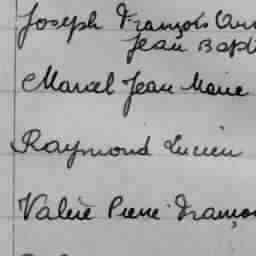 Joseph François
Jean Bapt
Marcel Jean Marie
Raymond Lucien
Valère Pierre François